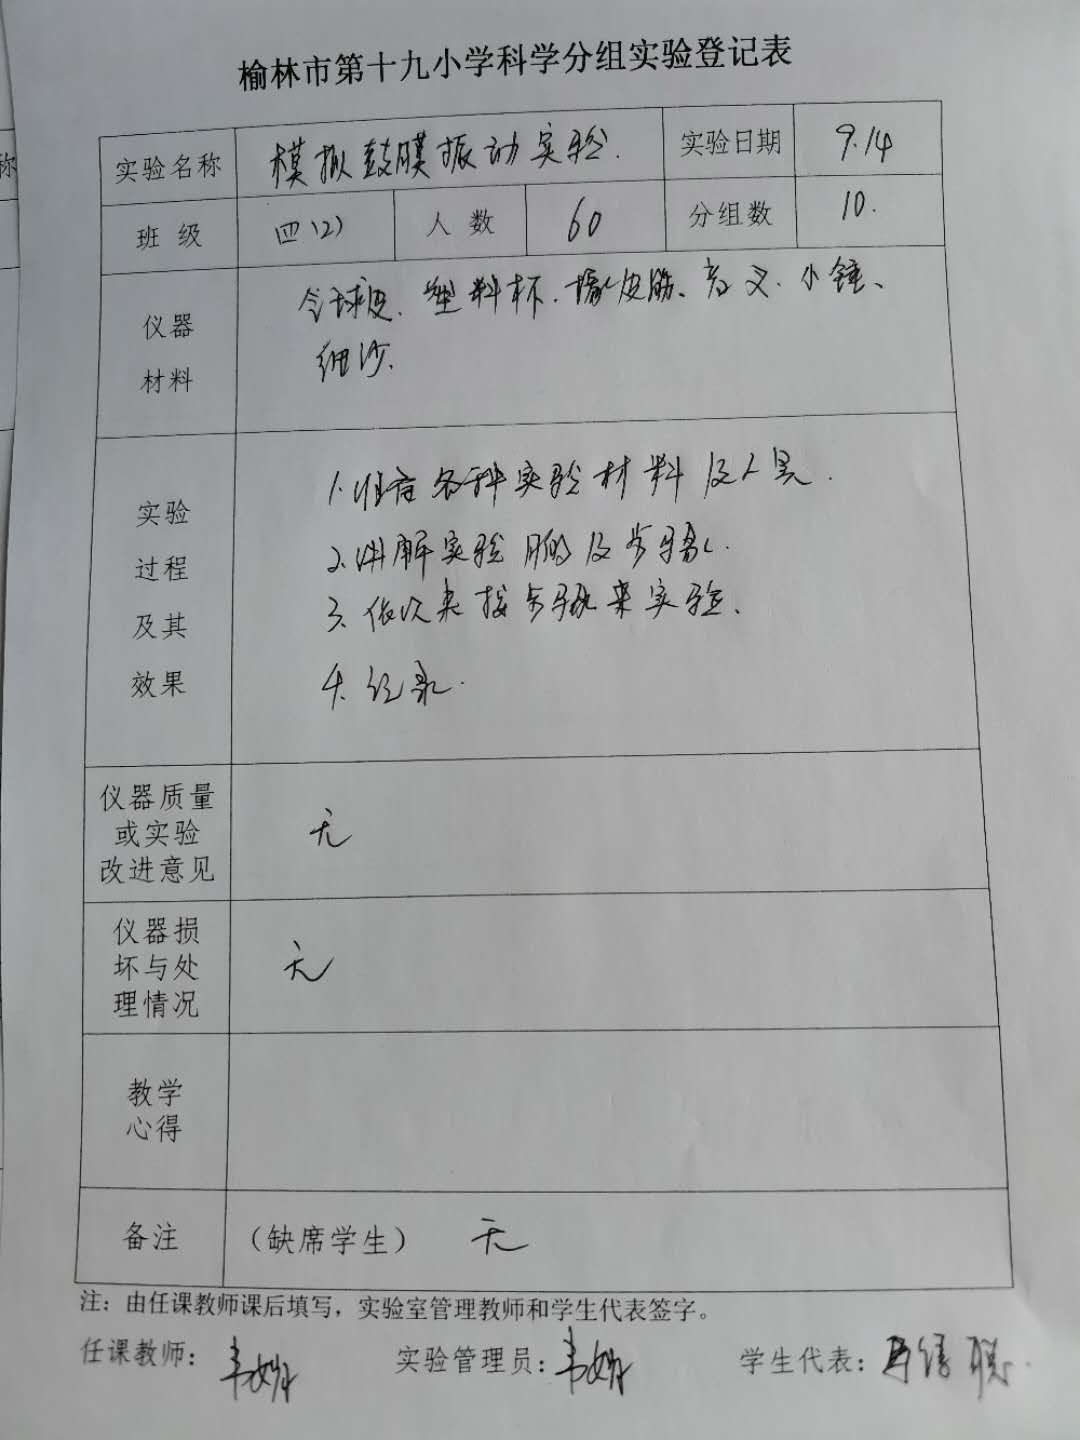 榆林市第十九小学科学分组实验登记表
实验名称 模拟鼓膜振动实验. 实验日期 9.14
班 级 四(2) 人 数 60 分组数 10.
仪器
材料
气球皮、塑料杯、橡皮筋、音叉、小锤、
细沙.
实验
过程
及其
效果
1.准备各种实验材料及工具.
2.讲解实验目的及步骤.
3.依次来按步骤来实验.
4.记录.
仪器质量
或实验
改进意见
无
仪器损
坏与处
理情况
无
教学
心得
备注 (缺席学生) 无
注：由任课教师课后填写，实验室管理教师和学生代表签字。
任课教师： 实验管理员： 学生代表：
称